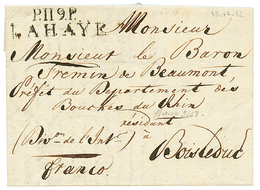 P.119.P.
LAHAYE
Monsieur
Monsieur le Baron
Fremin de Beaumont,
Préfet du Département des
Bouches du Rhin
résidant
(Div.on de l'Int.r) à
Franco
Boisleduc